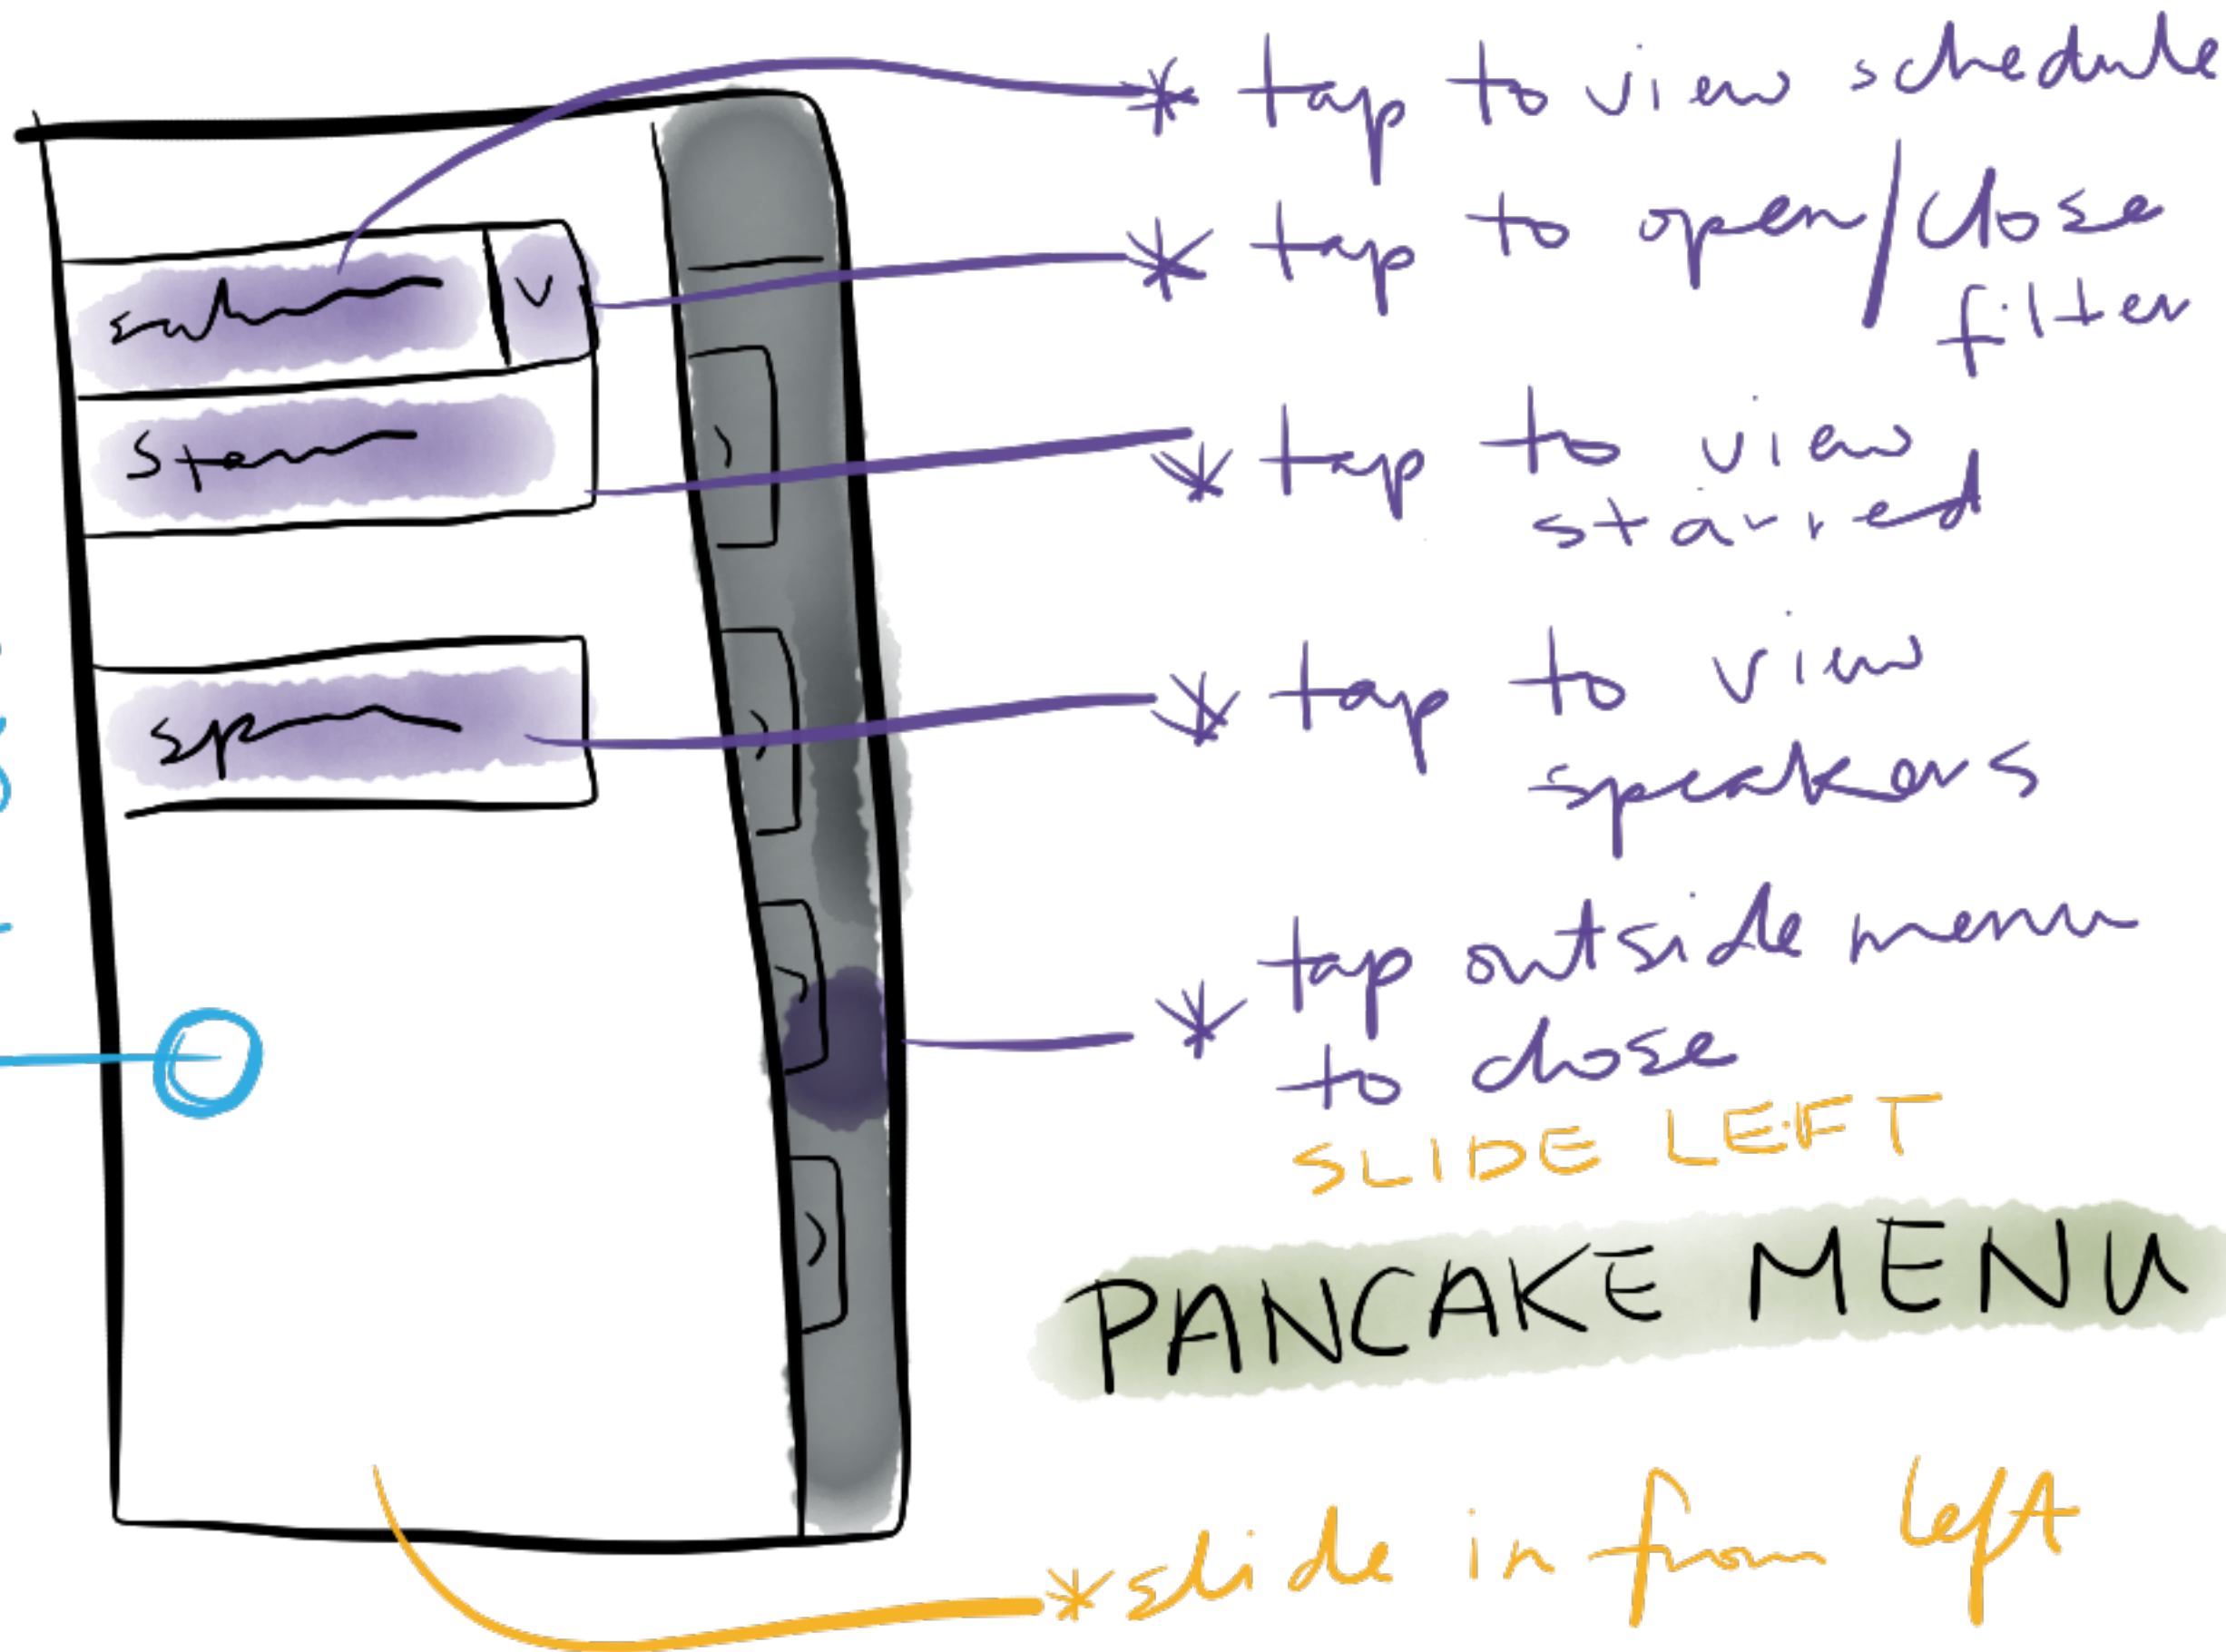 * tap to view schedule
* tap to open/close
filter
V
* tap to view
starred
* tap to view
speakers
* tap outside menu
to close
SLIDE LEFT
PANCAKE MENU
* slide in from left